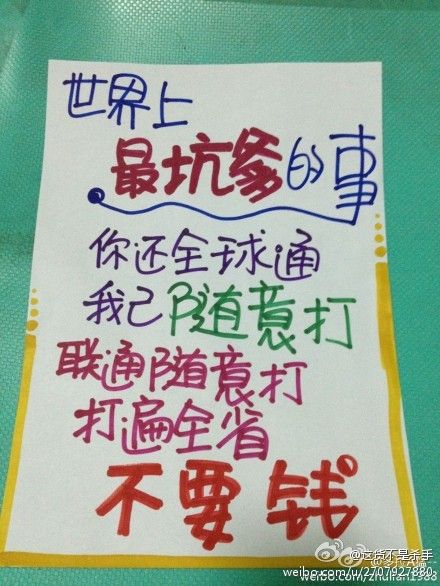 世界上
最坑爹的事
你还全球通
我己随意打
联通随意打
打遍全省
不要钱
@这货不是杀手
weibo.com/u/2707927880